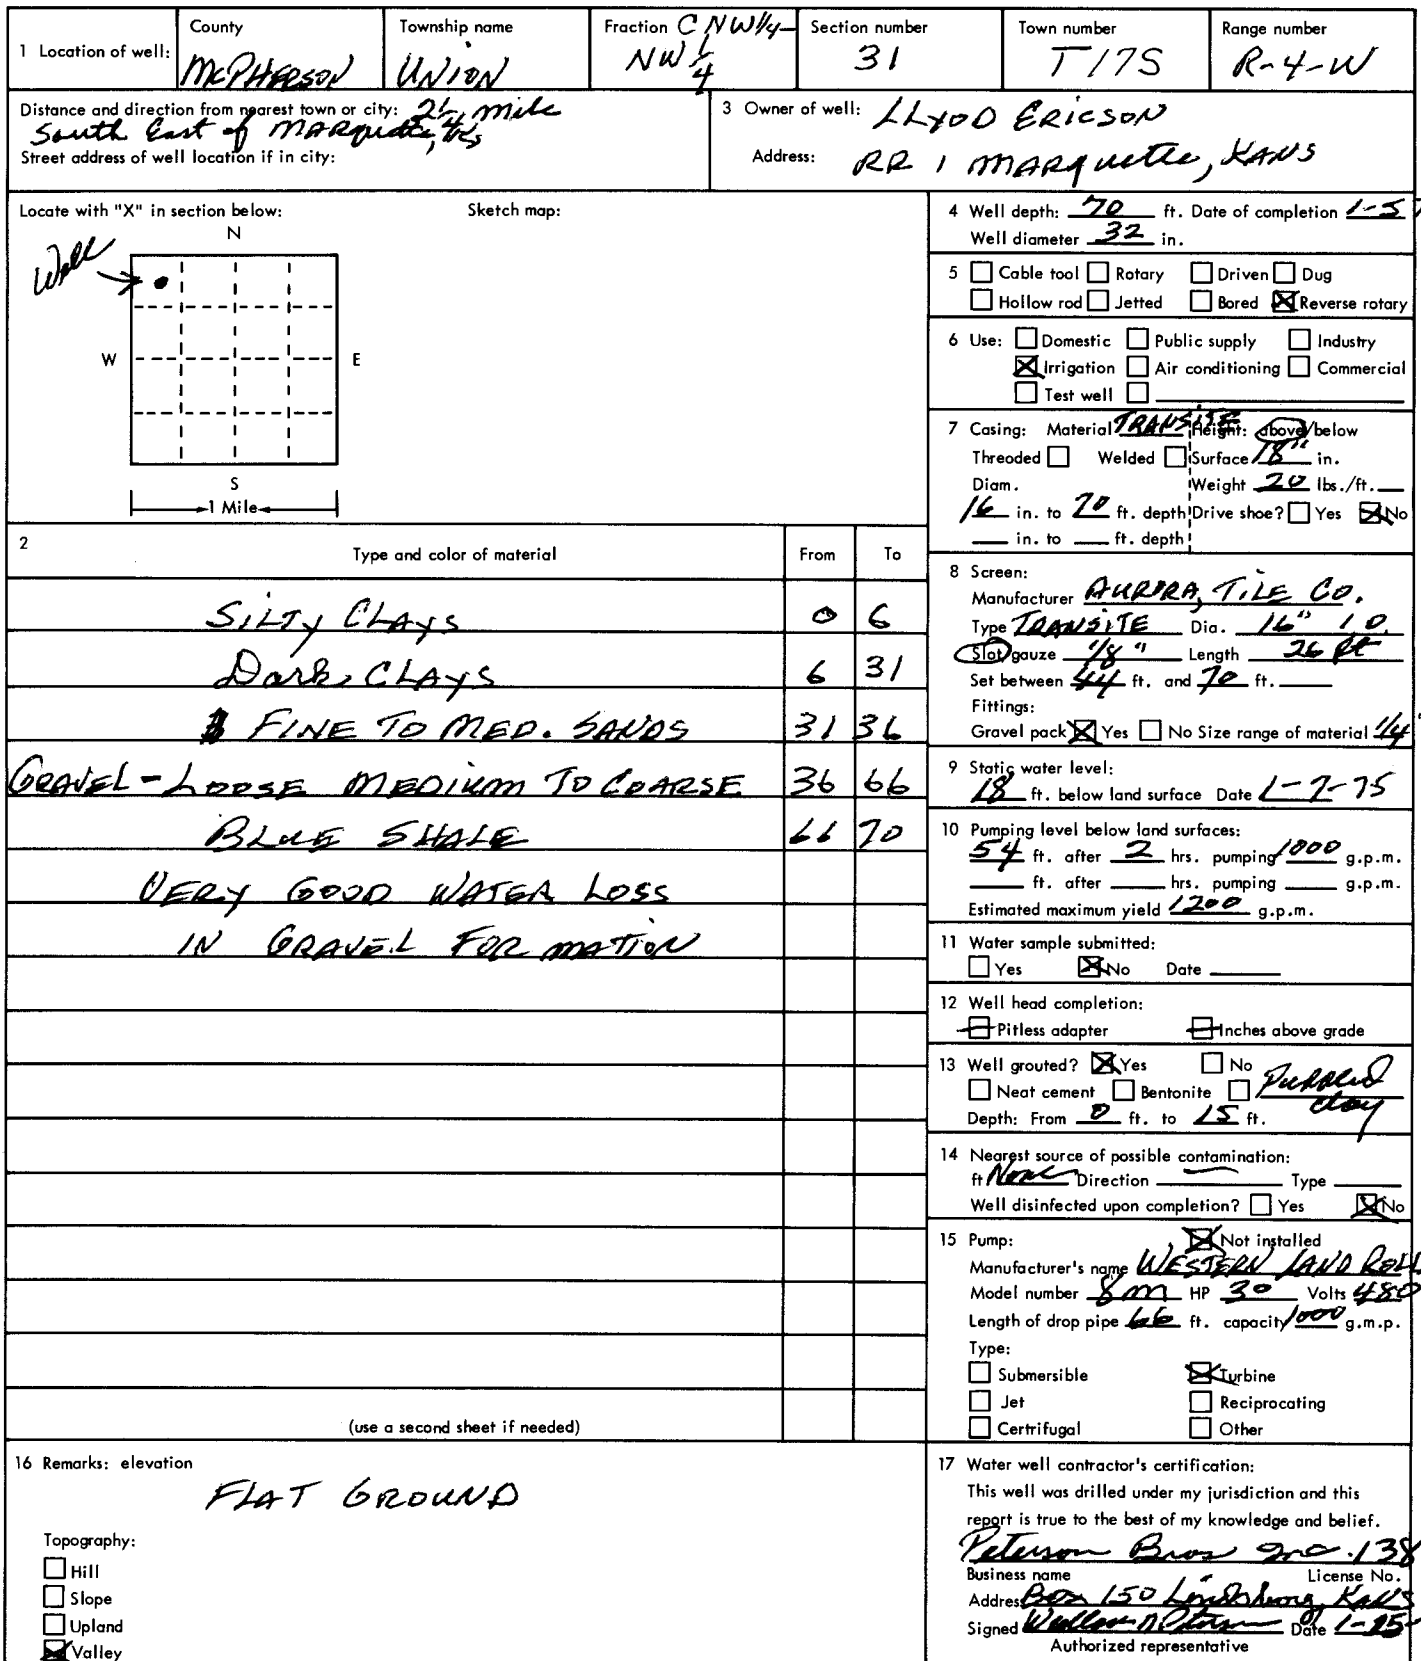 1 Location of well:
County
McPHERSON
Township name
UNION
Fraction C NW 1/4-
NW 1/4
Section number
31
Town number
T17S
Range number
R-4-W
Distance and direction from nearest town or city: mile
South East of MARquette, Ks
Street address of well location if in city:
3 Owner of well: LLYOD ERICSON
Address: RR 1 MARquette, KANS
Locate with "X" in section below:
Sketch map:
Well
N
W
E
S
1 Mile
4 Well depth: 70 ft. Date of completion 1-5
Well diameter 32 in.
5 Cable tool Rotary Driven Dug
Hollow rod Jetted Bored Reverse rotary
6 Use: Domestic Public supply Industry
Irrigation Air conditioning Commercial
Test well
7 Casing: Material TRANSITE Height: above/below
Threoded Welded Surface 18" in.
Diam. Weight 20 lbs./ft.
16 in. to 70 ft. depth Drive shoe? Yes No
in. to ft. depth
2
Type and color of material From To
SILTY CLAYS 0 6
Dark CLAYS 6 31
FINE TO MED. SANDS 31 36
GRAVEL - LOOSE MEDIUM TO COARSE 36 66
BLUE SHALE 66 70
VERY GOOD WATER LOSS
IN GRAVEL FORMATION
(use a second sheet if needed)
8 Screen:
Manufacturer AURORA, TILE CO.
Type TRANSITE Dia. 16" I.D.
Slot/gauze 1/8" Length 26 ft
Set between 44 ft. and 70 ft.
Fittings:
Gravel pack Yes No Size range of material 1/4"
9 Static water level:
18 ft. below land surface Date 1-7-75
10 Pumping level below land surfaces:
54 ft. after 2 hrs. pumping 1000 g.p.m.
ft. after hrs. pumping g.p.m.
Estimated maximum yield 1200 g.p.m.
11 Water sample submitted:
Yes No Date
12 Well head completion:
Pitless adapter Inches above grade
13 Well grouted? Yes No
Neat cement Bentonite Puddled
clay
Depth: From 0 ft. to 15 ft.
14 Nearest source of possible contamination:
ft None Direction Type
Well disinfected upon completion? Yes No
15 Pump: Not installed
Manufacturer's name WESTERN LAND ROLL
Model number 8M HP 30 Volts 480
Length of drop pipe 66 ft. capacity 1000 g.m.p.
Type:
Submersible Turbine
Jet Reciprocating
Certrifugal Other
16 Remarks: elevation
FLAT GROUND
Topography:
Hill
Slope
Upland
Valley
17 Water well contractor's certification:
This well was drilled under my jurisdiction and this
report is true to the best of my knowledge and belief.
Peterson Bros Inc. 138
Business name License No.
Address Box 150 Lindsborg, KANS
Signed Peterson Date
Authorized representative